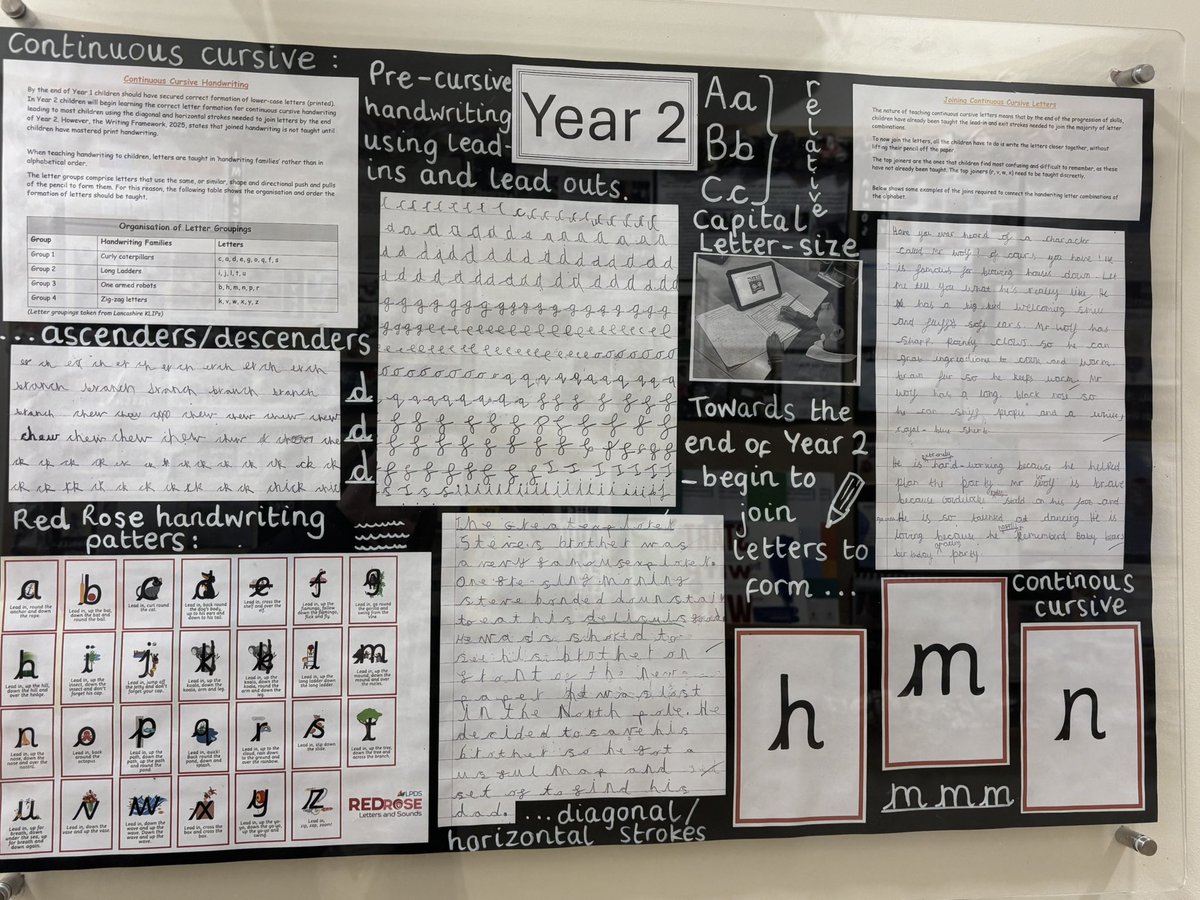 Continuous cursive :
Continuous Cursive Handwriting
By the end of Year 1 children should have secured correct formation of lower-case letters (printed).
In Year 2 children will begin learning the correct letter formation for continuous cursive handwriting
leading to most children using the diagonal and horizontal strokes needed to join letters by the end
of Year 2. However, the Writing Framework, 2025, states that joined handwriting is not taught until
children have mastered print handwriting.
When teaching handwriting to children, letters are taught in 'handwriting families' rather than in
alphabetical order.
The letter groups comprise letters that use the same, or similar, shape and directional push and pulls
of the pencil to form them. For this reason, the following table shows the organisation and order the
formation of letters should be taught.
Organisation of Letter Groupings
Group Handwriting Families Letters
Group 1 Curly caterpillars c, a, d, e, g, o, q, f, s
Group 2 Long Ladders i, j, l, t, u
Group 3 One armed robots b, h, m, n, p, r
Group 4 Zig-zag letters k, v, w, x, y, z
(Letter groupings taken from Lancashire KLIPs)
...ascenders/descenders
branch branch branch branch branch
d
d
d
Red Rose handwriting
patters :
Pre-cursive
handwriting
using lead-
ins and lead outs.
Year 2
Aa
Bb
Cc
relative
Capital
Letter-size
Towards the
end of Year 2
-begin to
join
letters to
form ...
Joining Continuous Cursive Letters
The nature of teaching continuous cursive letters means that by the end of the progression of skills,
children have already been taught the lead-in and exit strokes needed to join the majority of letter
combinations.
To now join the letters, all the children have to do is write the letters closer together, without
lifting their pencil off the paper.
The top joiners are the ones that children find most confusing and difficult to remember, as these
have not already been taught. The top joiners (r, v, w, x) need to be taught discretely.
Below shows some examples of the joins required to connect the handwriting letter combinations of
the alphabet.
Have you ever heard of a character
called Mr wolf? of cours you have! He
is famous for blowing houses down. Let
me tell you what he's really like. He
has a big kind welcoming smile
and fluffy soft ears. Mr wolf has
sharp pointy claws so he can
grab ingrediants to cook and warm
brown fur so he keeps warm. Mr
wolf has a long black nose so
he can sniff people and a white,
royal-blue shirt.
He is hard-working because he helped
plan the party. Mr Wolf is brave
because Goldilocks stood on his foot and
He is so talented at dancing He is
loving because he remembered Baby bears
birthday party
The great explorer
Steve's brother was
a very famous explorer.
One fre-sing morning
steve bonded downstairs
to eat his delisuls food
He was shokd to
see his brother on
front of the news-
paper he was lost
in the North pole. He
decided to save his
brother so he got a
usful map and
set of to find his
dad.
...diagonal/
horizontal strokes
h
m
mmm
continous
cursive
n
a b c d e f g
Lead in, round the anchor and down the rope.
Lead in, up the bat, down the bat and round the ball.
Lead in, curl round the cat.
Lead in, back round the dog's body, up to his ears and down to his tail.
Lead in, cross the shelf and over the elf.
Lead in, up the flamingo, follow down the flamingo, flick and fly.
Lead in, go round the gorilla and swing from the vine
h i j k k l m
Lead in, up the hill, down the hill and over the hedge.
Lead in, up the insect, down the insect and don't forget his cap.
Lead in, jump off the jetty and don't forget your cap.
Lead in, up the koala, down the koala, arm and leg.
Lead in, up the koala, down the koala, round the arm and down the leg.
Lead in, up the long ladder down the long ladder.
Lead in, up the mound, down the mound and over the moles.
n o p q r s t
Lead in, up the nose, down the nose and over the nostril.
Lead in, back around the octopus
Lead in, up the path, down the path, up the path and round the pond.
Lead in, quick! Back round the pond, down and splash.
Lead in, up to the cloud, rain down to the ground and over the rainbow.
Lead in, slip down the slide.
Lead in, up the tree, down the tree and across the branch.
u v w x y z
Lead in, up for breath, down under the sea, up for breath and down again.
Lead in, down the vase and up the vase.
Lead in, down the wave and up the wave. Down the wave and up the wave.
Lead in, cross the box and cross the box.
Lead in, up the yo-yo, down the yo-yo, up the yo-yo and swing.
Lead in, zip, zap, zoom!
LPDS
RED ROSE
Letters and Sounds